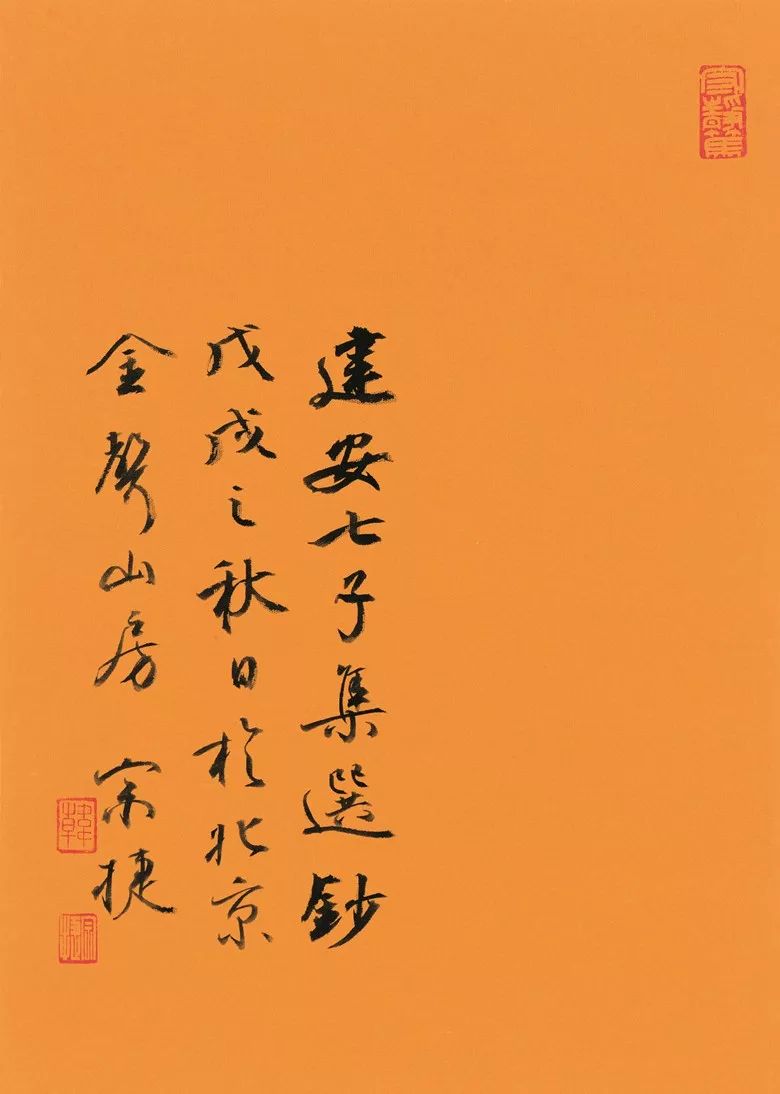 建安七子集選鈔
戊戌之秋日於北京
金聲山房 宗捷
韓